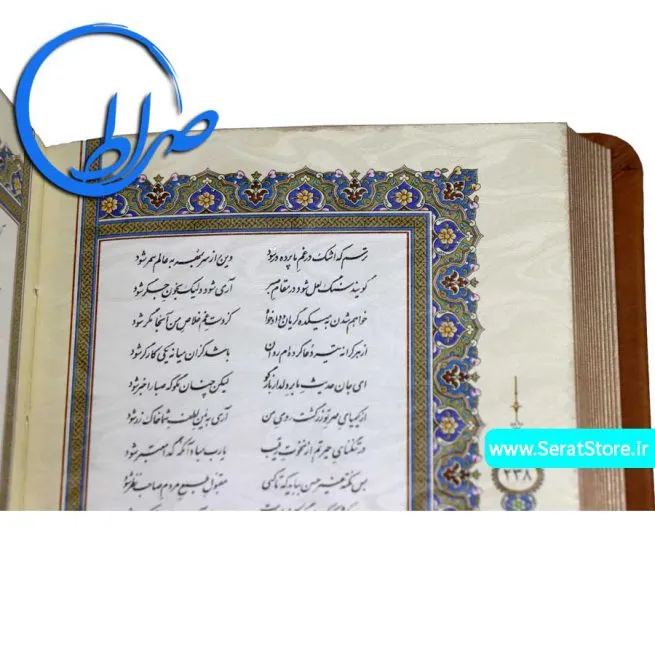 صراط
ترسم که اشک در غم ما پرده در شود وین راز سر به مهر به عالم سمر شود
گویند سنگ لعل شود در مقام صبر آری شود ولیک به خون جگر شود
خواهم شدن به میکده گریان و دادخواه کز دست غم خلاص من آنجا مگر شود
از هر کرانه تیر دعا کرده‌ام روان باشد کزان میانه یکی کارگر شود
ای جان حدیث ما بر دلدار بازگو لیکن چنان مگو که صبا را خبر شود
از کیمیای مهر تو زر گشت روی من آری به یمن لطف شما خاک زر شود
در تنگنای حیرتم از نخوت رقیب یارب مباد آنکه گدا معتبر شود
بس نکته غیر حسن بباید که تا کسی مقبول طبع مردم صاحب نظر شود
www.SeratStore.ir
۲۳۸